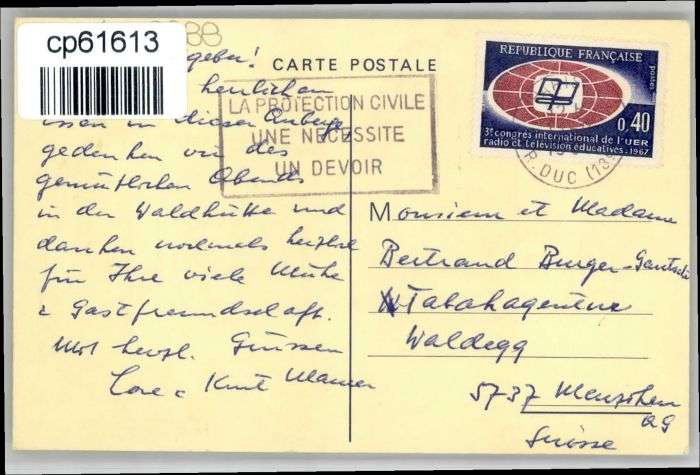 cp61613
CARTE POSTALE
geber!
herrlichen
in dieser
gedenken wir des
gemütlichen Abends
in der Waldhütte und
danken nochmals herzlich
für Ihre viele Mühe
& Gastfreundschaft.
Mit herzl. Grüssen
Lore & Kurt
LA PROTECTION CIVILE
UNE NECESSITE
UN DEVOIR
REPUBLIQUE FRANÇAISE
postes
0,40
3e congrès international de l'UER
radio et télévision éducatives. 1967
R. DUC (13
Monsieur et Madame
Bertrand Burger-Gautschi
Tabakagentur
Waldegg
5737 Menziken
AG
Suisse